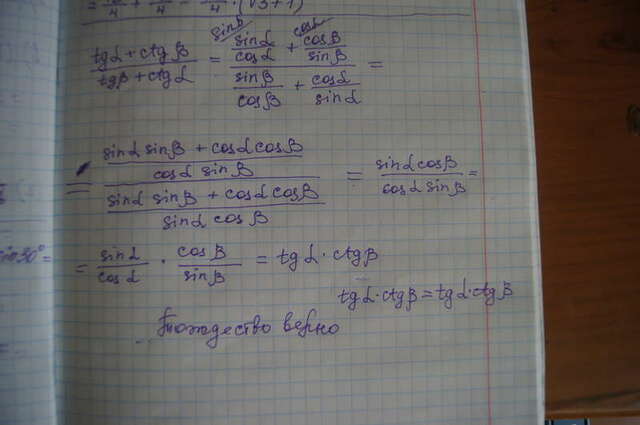 (tgα + ctgβ)/(tgβ + ctgα) = (sinα/cosα + cosβ/sinβ)/(sinβ/cosβ + cosα/sinα) =
= ((sinα sinβ + cosα cosβ)/(cosα sinβ))/((sinα sinβ + cosα cosβ)/(sinα cosβ)) = (sinα cosβ)/(cosα sinβ) =
sin30° =
= sinα/cosα · cosβ/sinβ = tgα · ctgβ
tgα·ctgβ = tgα·ctgβ
Тождество верно